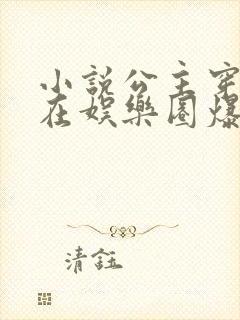 小說公主穿
在娛樂圈爆
清鈺